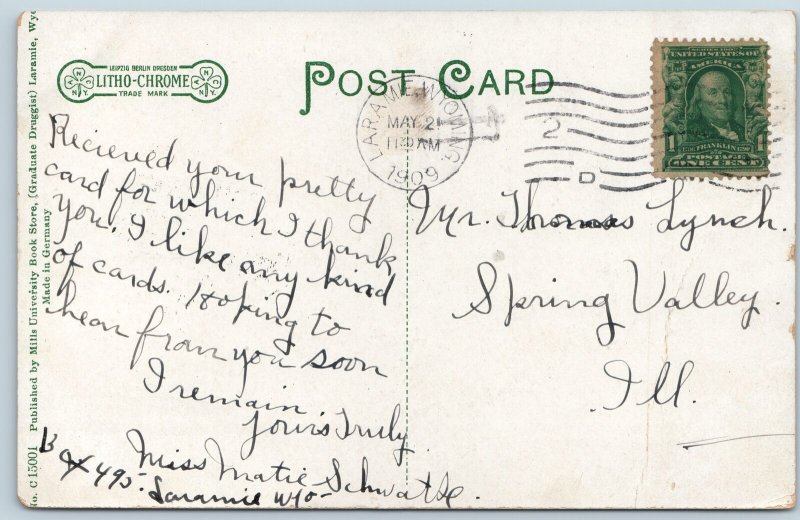 LEIPZIG BERLIN DRESDEN
LITHO-CHROME
TRADE MARK
N.Y.
N.Y.
POST CARD
LARAMIE, WYOMING
MAY 21
11 AM
1909
2
D
SERIES 1902
UNITED STATES OF
AMERICA
1
1
FRANKLIN
POSTAGE
ONE CENT
Recieved your pretty
card for which I thank
you. I like any kind
of cards. Hoping to
hear from you soon
I remain
Yours Truly
Miss Matie Schwatke.
Box 495.
Laramie Wyo-
Mr. Thomas Lynch.
Spring Valley.
Ill.
No. C 15001 Published by Mills University Book Store, (Graduate Druggist) Laramie, Wyo
Made in Germany